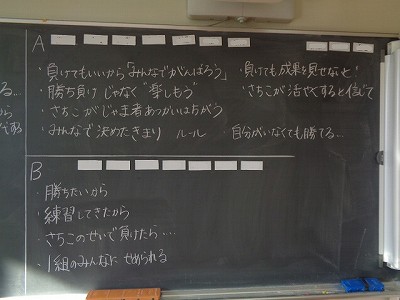 る…
から
である
A
・負けてもいいから「みんなでがんばろう」
・勝ち負けじゃなく"楽しもう"
・さちこがじゃま者あつかいはちがう
・みんなで決めたきまり ルール
・負けても成果を見せないと!
・さちこが活やくすると信じて
自分がいなくても勝てる…
B
・勝ちたいから
・練習してきたから
・さちこのせいで負けたら…
・1組のみんなにせめられる